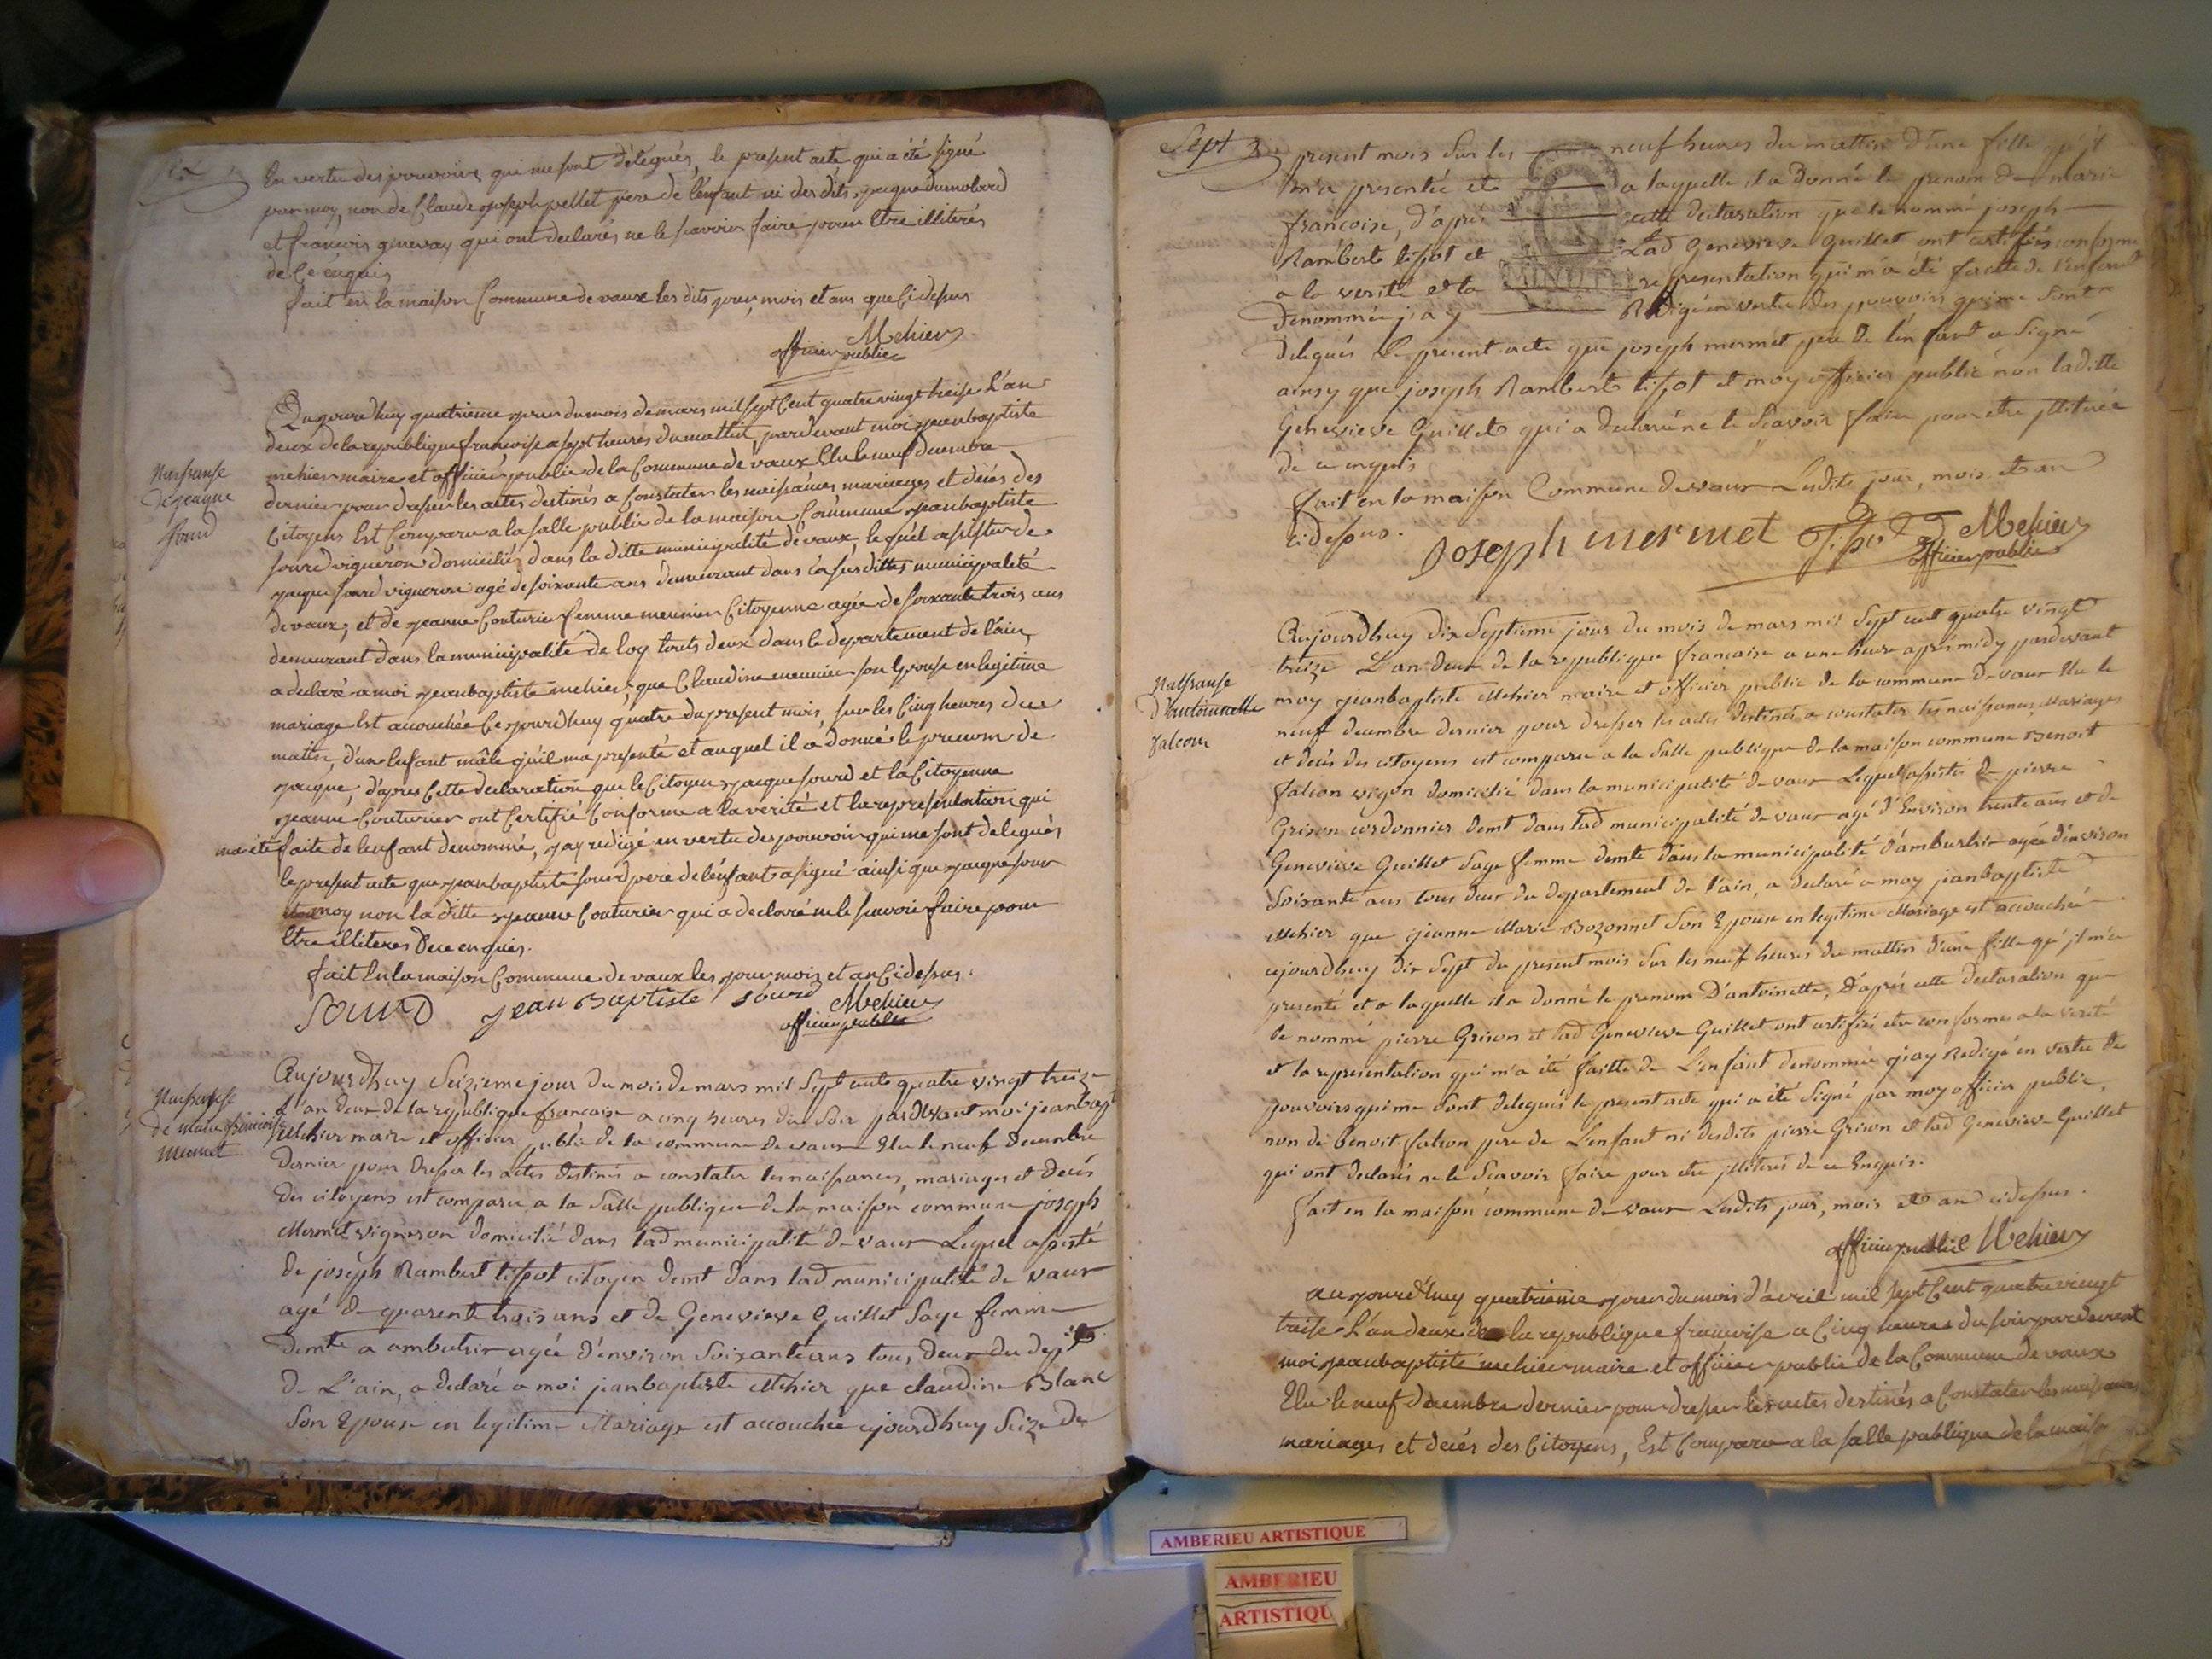 Six
En vertu des pouvoirs qui me sont délégués, le present acte qui a été signé
par moy, non de Claude joseph pellet pere de l'enfant ni des dits jacque dumolard
et francois genevay qui ont declarés ne le scavoir faire pour etre illiterés
de ce enquis
fait en la maison Commune de vaux les dits jour mois et ans que Cidessus
Mehier
officier public
Naissanse
de jacque
sourd
Aujourdhuy quatrieme jour du mois de mars mil sept Cent quatre vingt treise L'an
deux de la republique francoise a sept heures du mattin, pardevant moi jeanbaptiste
mehier maire et officier public de la Commune de vaux Elu le neuf decembre
dernier pour dresser les actes destinés a Constater les naissances mariages et décés des
Citoyens Est Comparu a la salle public de la maison Commune jeanbaptiste
sourd vigneron domicilié dans la ditte municipalité de vaux, lequel assister de
jacque sourd vigneron agé de soixante ans demeurant dans la susditte municipalité
de vaux; et de jeanne Couturier femme meunier Citoyenne agée de soixante trois ans
demeurant dans la municipalité de loy touts deux dans le departement de l'ain,
a declaré a moi jeanbaptiste mehier, que Claudine meunier son Epouse en legitime
mariage Est accouchée Cejourdhuy quatre du present mois, sur les Cinq heures du
matin, d'un Enfant mâle qu'il m'a presenté et auquel il a donné le prenom de
jacque, d'apres Cette declaration que le Citoyen jacque sourd et la Citoyenne
jeanne Couturier ont Certifié Conforme a la verité et la representation qui
m'a été faite de l'enfant denommé, j'ay redigé en vertu des pouvoir qui me sont delegués
le present acte que jeanbaptiste sourd pere de l'enfant a signé ainsi que jacque sour
et moy non la ditte jeanne Couturier qui a declaré ne le scavoir faire pour
Etre illiteres de ce enquis.
fait En la maison Commune de vaux les jour mois et an Cidessus.
SOURD jean Baptiste sourd Mehier
officier public
Naissanse
de marie francoise
mermet
Aujourdhuy Seizieme jour du mois de mars mil Sept cents quatre vingt treize
L'an deux de la republique francaise a cinq heures du Soir pardevant moi jeanbapt
Mehier maire et officier public de la commune de vaux Elu le neuf decembre
dernier pour dresser les actes destinés a constater les naissances, mariages et decés
des citoyens est comparu a la Salle publique de la maison commune joseph
Mermet vigneron domicilié dans lad municipalité de vaux Lequel assisté
de joseph Rambert tissot citoyen demt dans lad municipalité de vaux
agé de quarente trois ans et de Genevieve Guillet Sage femme
demte a ambutrix agée d'environ Soixante ans tous deux du dept
de L'ain, a declaré a moi jeanbaptiste Mehier que claudine Blanc
Son Epouse en legitime Mariage est accouchée ajourdhuy Seize du
Sept
present mois Sur les neuf heures du mattin d'une fille qu'jl
m'a presentée et a laquelle il a Donné le prenom de marie
francoise, d'aprés cette declaration que le nommé joseph
Rambert tissot et Lad Genevieve Guillet ont certifiés conforme
a la verité et la representation qui m'a été faitte de l'enfant
MINUTE
Denommée j'ay Redigé en vertu des pouvoirs qui me sont
delegués Le présent acte que joseph mermet pere de l'enfant a Signé
ainsy que joseph Rambert tissot et moy officier public non laditte
Genevieve Guillet qui a declaré ne le Scavoir faire pour etre jlliterée
de ce enquis
fait en la maison Commune de vaux Lesdits jour, mois et an
cidessus.
joseph mermet Tissot Mehier
officier public
Naissanse
d'Antoinette
falcon
Aujourdhuy dix Septieme jour du mois de mars mil Sept cent quatre vingt
treize L'an deux de la republique francaise a une heure aprés midy pardevant
moy jeanbaptiste Mehier maire et officier public de la commune de vaux Elu le
neuf decembre dernier pour dresser les actes destinés a constater les naissances, Mariages
et decés des citoyens est comparu a la Salle publique de la maison commune Benoit
falcon vigon domicilié dans la municipalité de vaux Lequel assisté de pierre
Grison cordonnier demt dans lad municipalité de vaux agé d'Environ trente ans et de
Genevieve Guillet Sage femme demte dans la municipalité d'ambutrix agée d'environ
Soixante ans tous deux du departement de l'ain, a declaré a moy jeanbaptiste
Mehier que jeanne Marie Bozonnet Son Epouse en legitime Mariage est accouchée
ajourdhuy dix Sept du present mois Sur les neuf heures du mattin d'une fille qu'jl m'a
presenté et a laquelle il a donné le prenom D'antoinette, D'aprés cette declaration que
le nommé pierre Grison et lad Genevieve Guillet ont certifiés etre conforme a la verité
et la representation qui m'a été faitte de L'enfant denommée j'ay Redigé en vertu de
pouvoirs qui me Sont delegués le present acte qui a été Signé par moy officier public,
non de benoit falcon pere de L'enfant ni desdits pierre Grison et lad Genevieve Guillet
qui ont declarés ne le Scavoir faire pour etre jlliterés de ce Enquis.
fait en la maison commune de vaux Lesdits jour, mois et an cidessus.
officier public Mehier
aujourdhuy quatrieme jour du mois d'avril mil sept Cent quatre vingt
treise L'an deux de la republique francoise a Cinq heures du soir pardevant
moi jeanbaptiste mehier maire et officier public de la Commune de vaux
Elu le neuf decembre dernier pour dresser les actes destinés a Constater les naissances
mariages et decés des Citoyens, Est Comparu a la salle publique de la maison
AMBERIEU ARTISTIQUE
AMBERIEU
ARTISTIQU